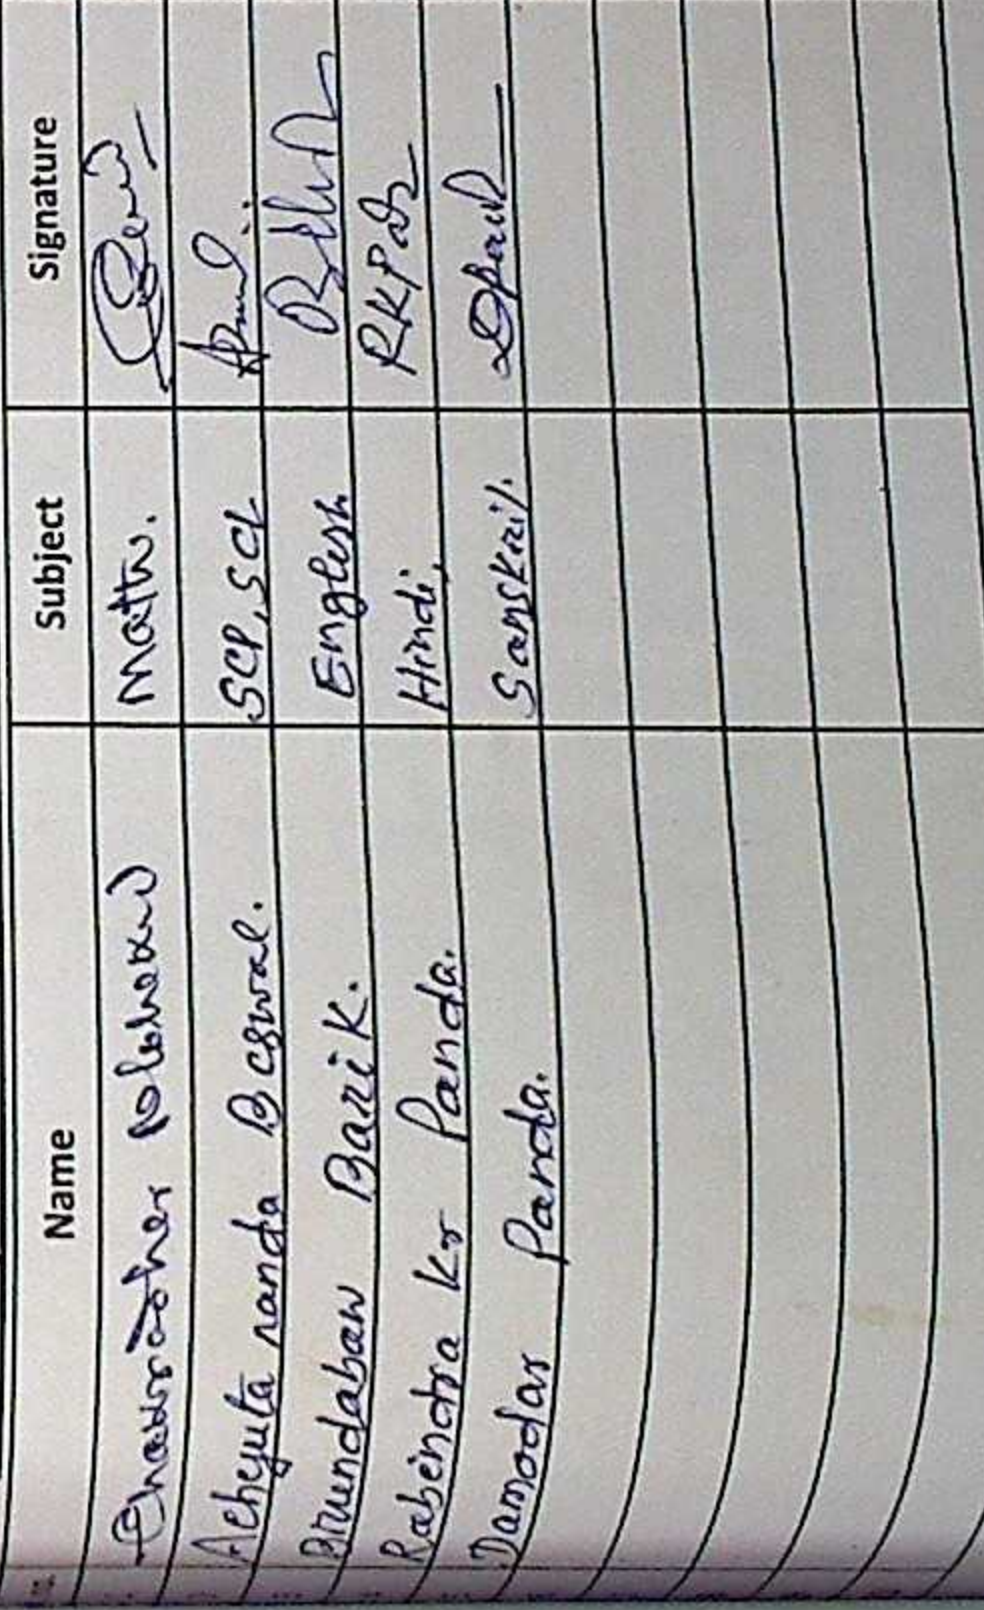 Name Subject Signature
Math.
Achyuta nanda Biswal. SCP, SCL
Brundaban Barik. English
Rabindra Kr Panda. Hindi, RKPad
Damodar Panda. Sanskrit.